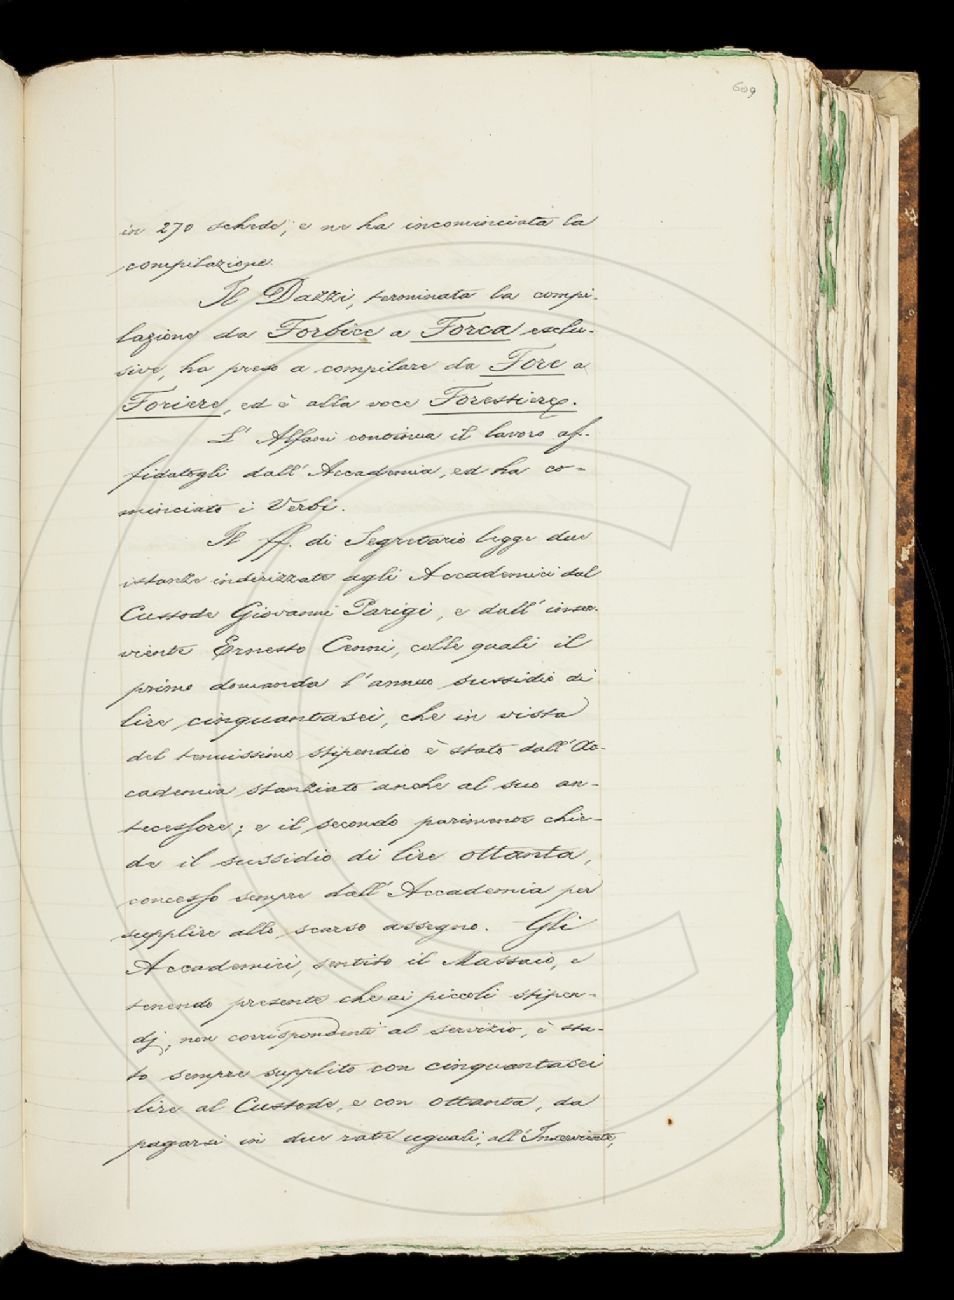 609
in 270 schede; e ne ha incominciata la
compilazione.
Il Dazzi, terminata la compi-
lazione da Forbice a Forca esclu-
sive, ha preso a compilare da Fore a
Foriere, ed è alla voce Forestiere.
L' Alfani continua il lavoro af-
fidatogli dall' Accademia, ed ha co-
minciato i Verbi.
Il ff. di Segretario legge due
istanze indirizzate agli Accademici dal
Custode Giovanni Parigi, e dall' inser-
viente Ernesto Cenni, colle quali il
primo domanda l' annuo sussidio di
lire cinquantasei, che in vista
del tenuissimo stipendio è stato dall' Ac-
cademia stanziato anche al suo an-
tecessore; e il secondo parimente chie-
de il sussidio di lire ottanta,
concesso sempre dall' Accademia per
supplire allo scarso assegno. Gli
Accademici, sentito il Massaio, e
tenendo presente che ai piccoli stipen-
dj, non corrispondenti al servizio, è sta-
to sempre supplito con cinquantasei
lire al Custode, e con ottanta, da
pagarsi in due rate uguali, all' Inserviente,